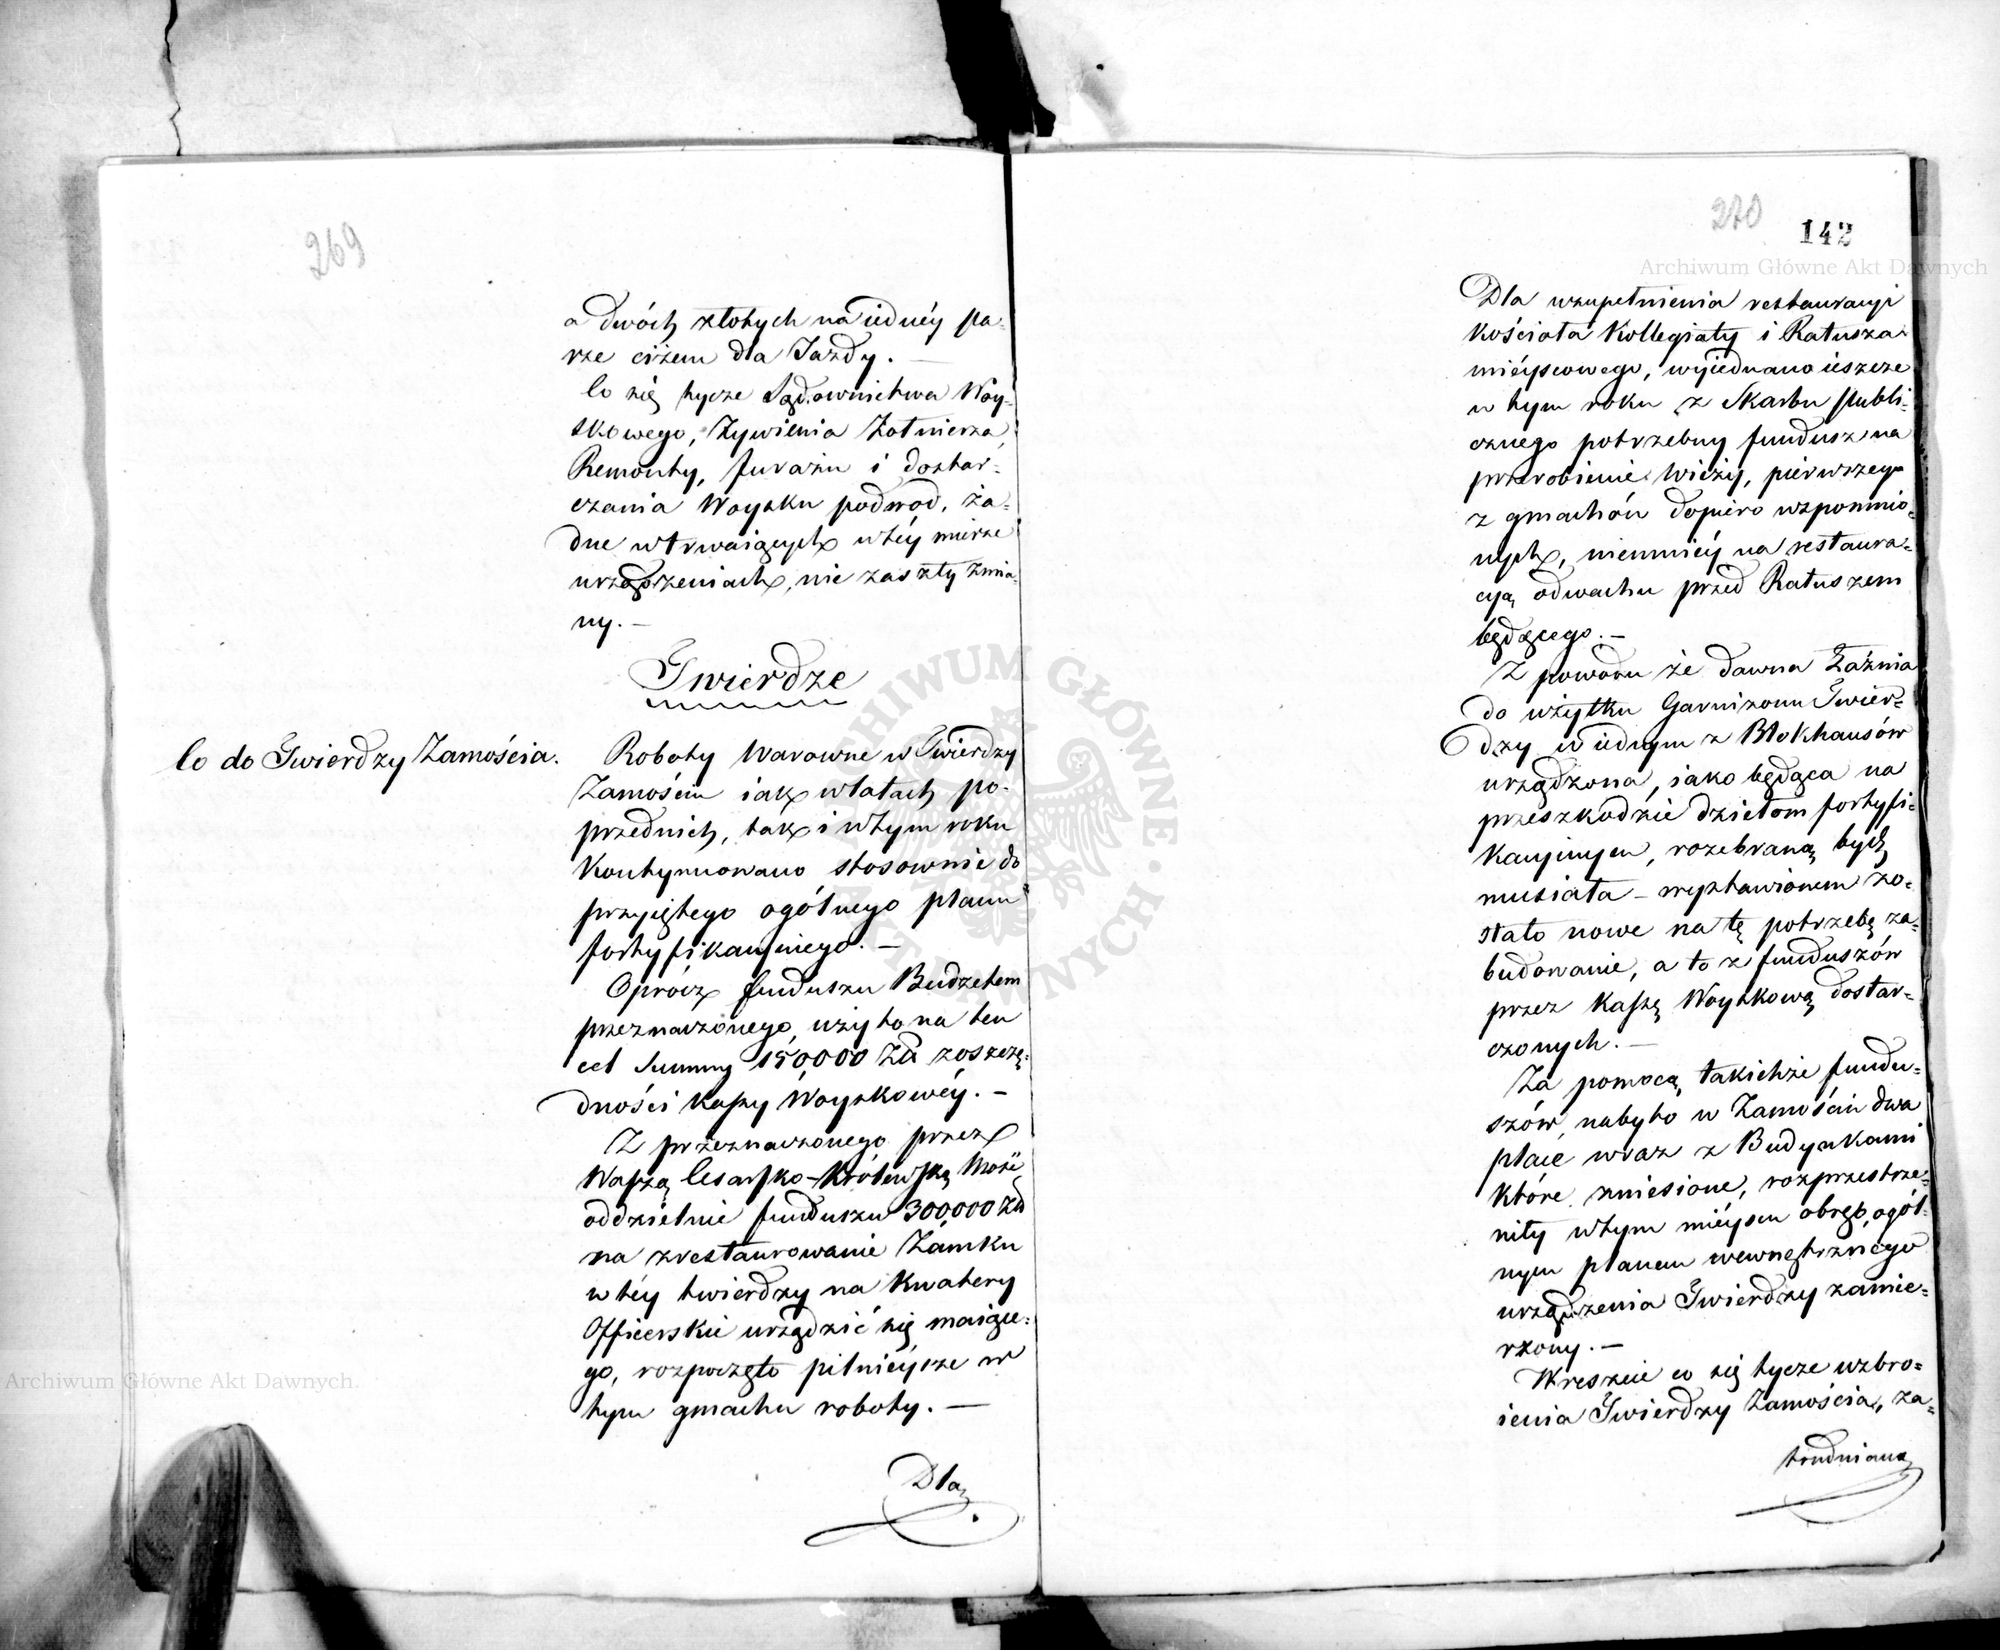 269
a dwóch złotych na iednéy pa-
rze ciżem dla Jazdy. —
Co się tycze Sądownictwa Woy-
skowego, Żywienia Żołnierza,
Remonty, furażu i dostar-
czania Woysku podwod, ża-
dne w trwaiących w téy mierze
urządzeniach, nie zaszły zmia-
ny. —
Twierdze
Co do Twierdzy Zamościa.
Roboty Warowne w Twierdzy
Zamościu iak w latach po-
przednich, tak i w tym roku
kontynuowano stosownie do
przyiętego ogólnego planu
fortyfikacyinego. —
Oprócz funduszu Budżetem
przeznaczonego, użyto na ten
cel Summy 150,000 Zł z oszczę-
dności kassy Woyskowéy. —
Z przeznaczonego przez
Waszą Cesarsko-Królewską Mość
oddzielnie funduszu 300,000 Zł
na zrestaurowanie Zamku
w téy twierdzy na Kwatery
Officerskie urządzić się maiące-
go, rozpoczęto pilnieysze w
tym gmachu roboty. —
Dla
270
142
Dla uzupełnienia restauracyi
kościoła Kollegiaty i Ratusza
mieyscowego, wyiednano ieszcze
w tym roku z Skarbu publi-
cznego potrzebny fundusz na
przerobienie Wieży, pierwszego
z gmachów dopiero wspomnio-
nych, niemniéy na restaura-
cyą odwachu przed Ratuszem
będącego. —
Z powodu że dawna Łaźnia
do użytku Garnizonu Twier-
dzy w iednym z Blokhausów
urządzona, iako będąca na
przeszkodzie dziełom fortyfi-
kacyinym, rozebraną bydź
musiała – wystawionem zo-
stało nowe na tę potrzebę za-
budowanie, a to z funduszów
przez Kassę Woyskową dostar-
czonych. —
Za pomocą takichże fundu-
szów, nabyto w Zamościu dwa
place wraz z Budynkami
które zniesione, rozprzestrze-
niły w tym mieyscu obręb, ogól-
nym planem wewnętrznego
urządzenia Twierdzy zamie-
rzony. —
Wreszcie co się tycze uzbro-
ienia Twierdzy Zamościa, za-
trudniano
Archiwum Główne Akt Dawnych
Archiwum Główne Akt Dawnych.
ARCHIWUM GŁÓWNE AKT DAWNYCH